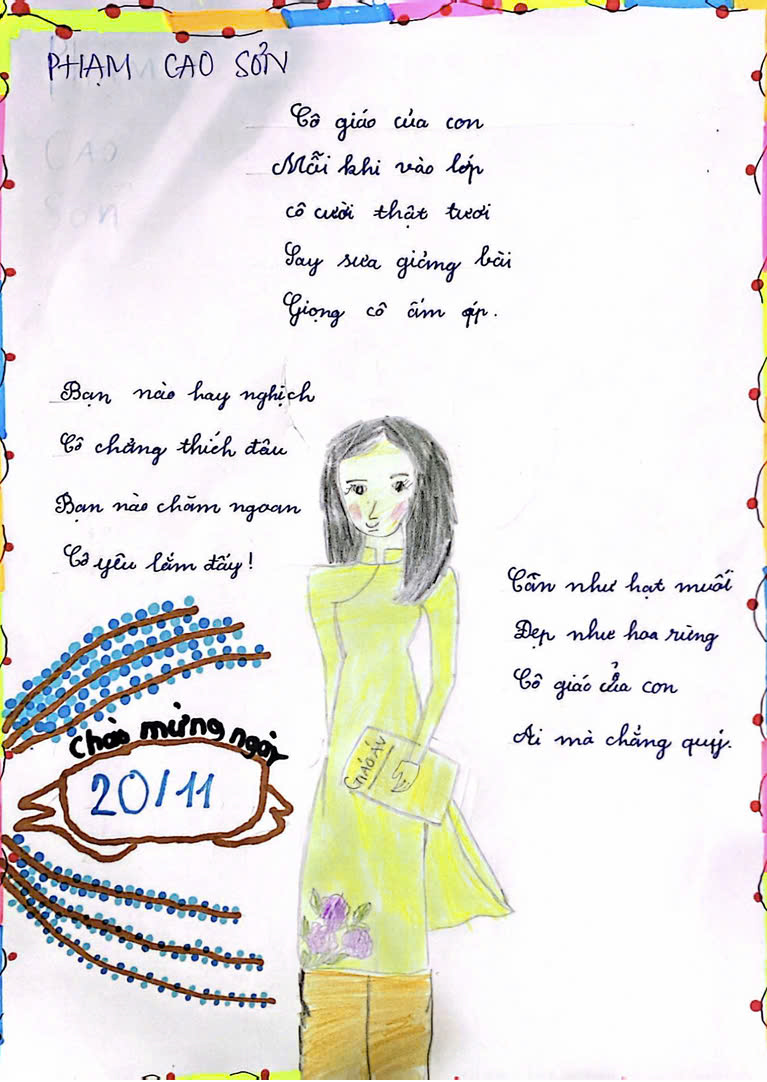 PHẠM CAO SƠN
Cô giáo của con
Mỗi khi vào lớp
cô cười thật tươi
Say sưa giảng bài
Giọng cô ấm áp.
Bạn nào hay nghịch
Cô chẳng thích đâu
Bạn nào chăm ngoan
Cô yêu lắm đấy!
Cần như hạt muối
Đẹp như hoa rừng
Cô giáo của con
Ai mà chẳng quý.
Chào mừng ngày
20/11
GIÁO ÁN